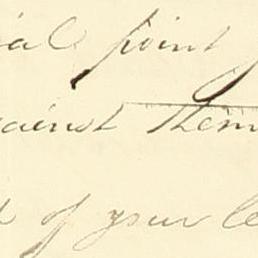 ial point
against them
of your le